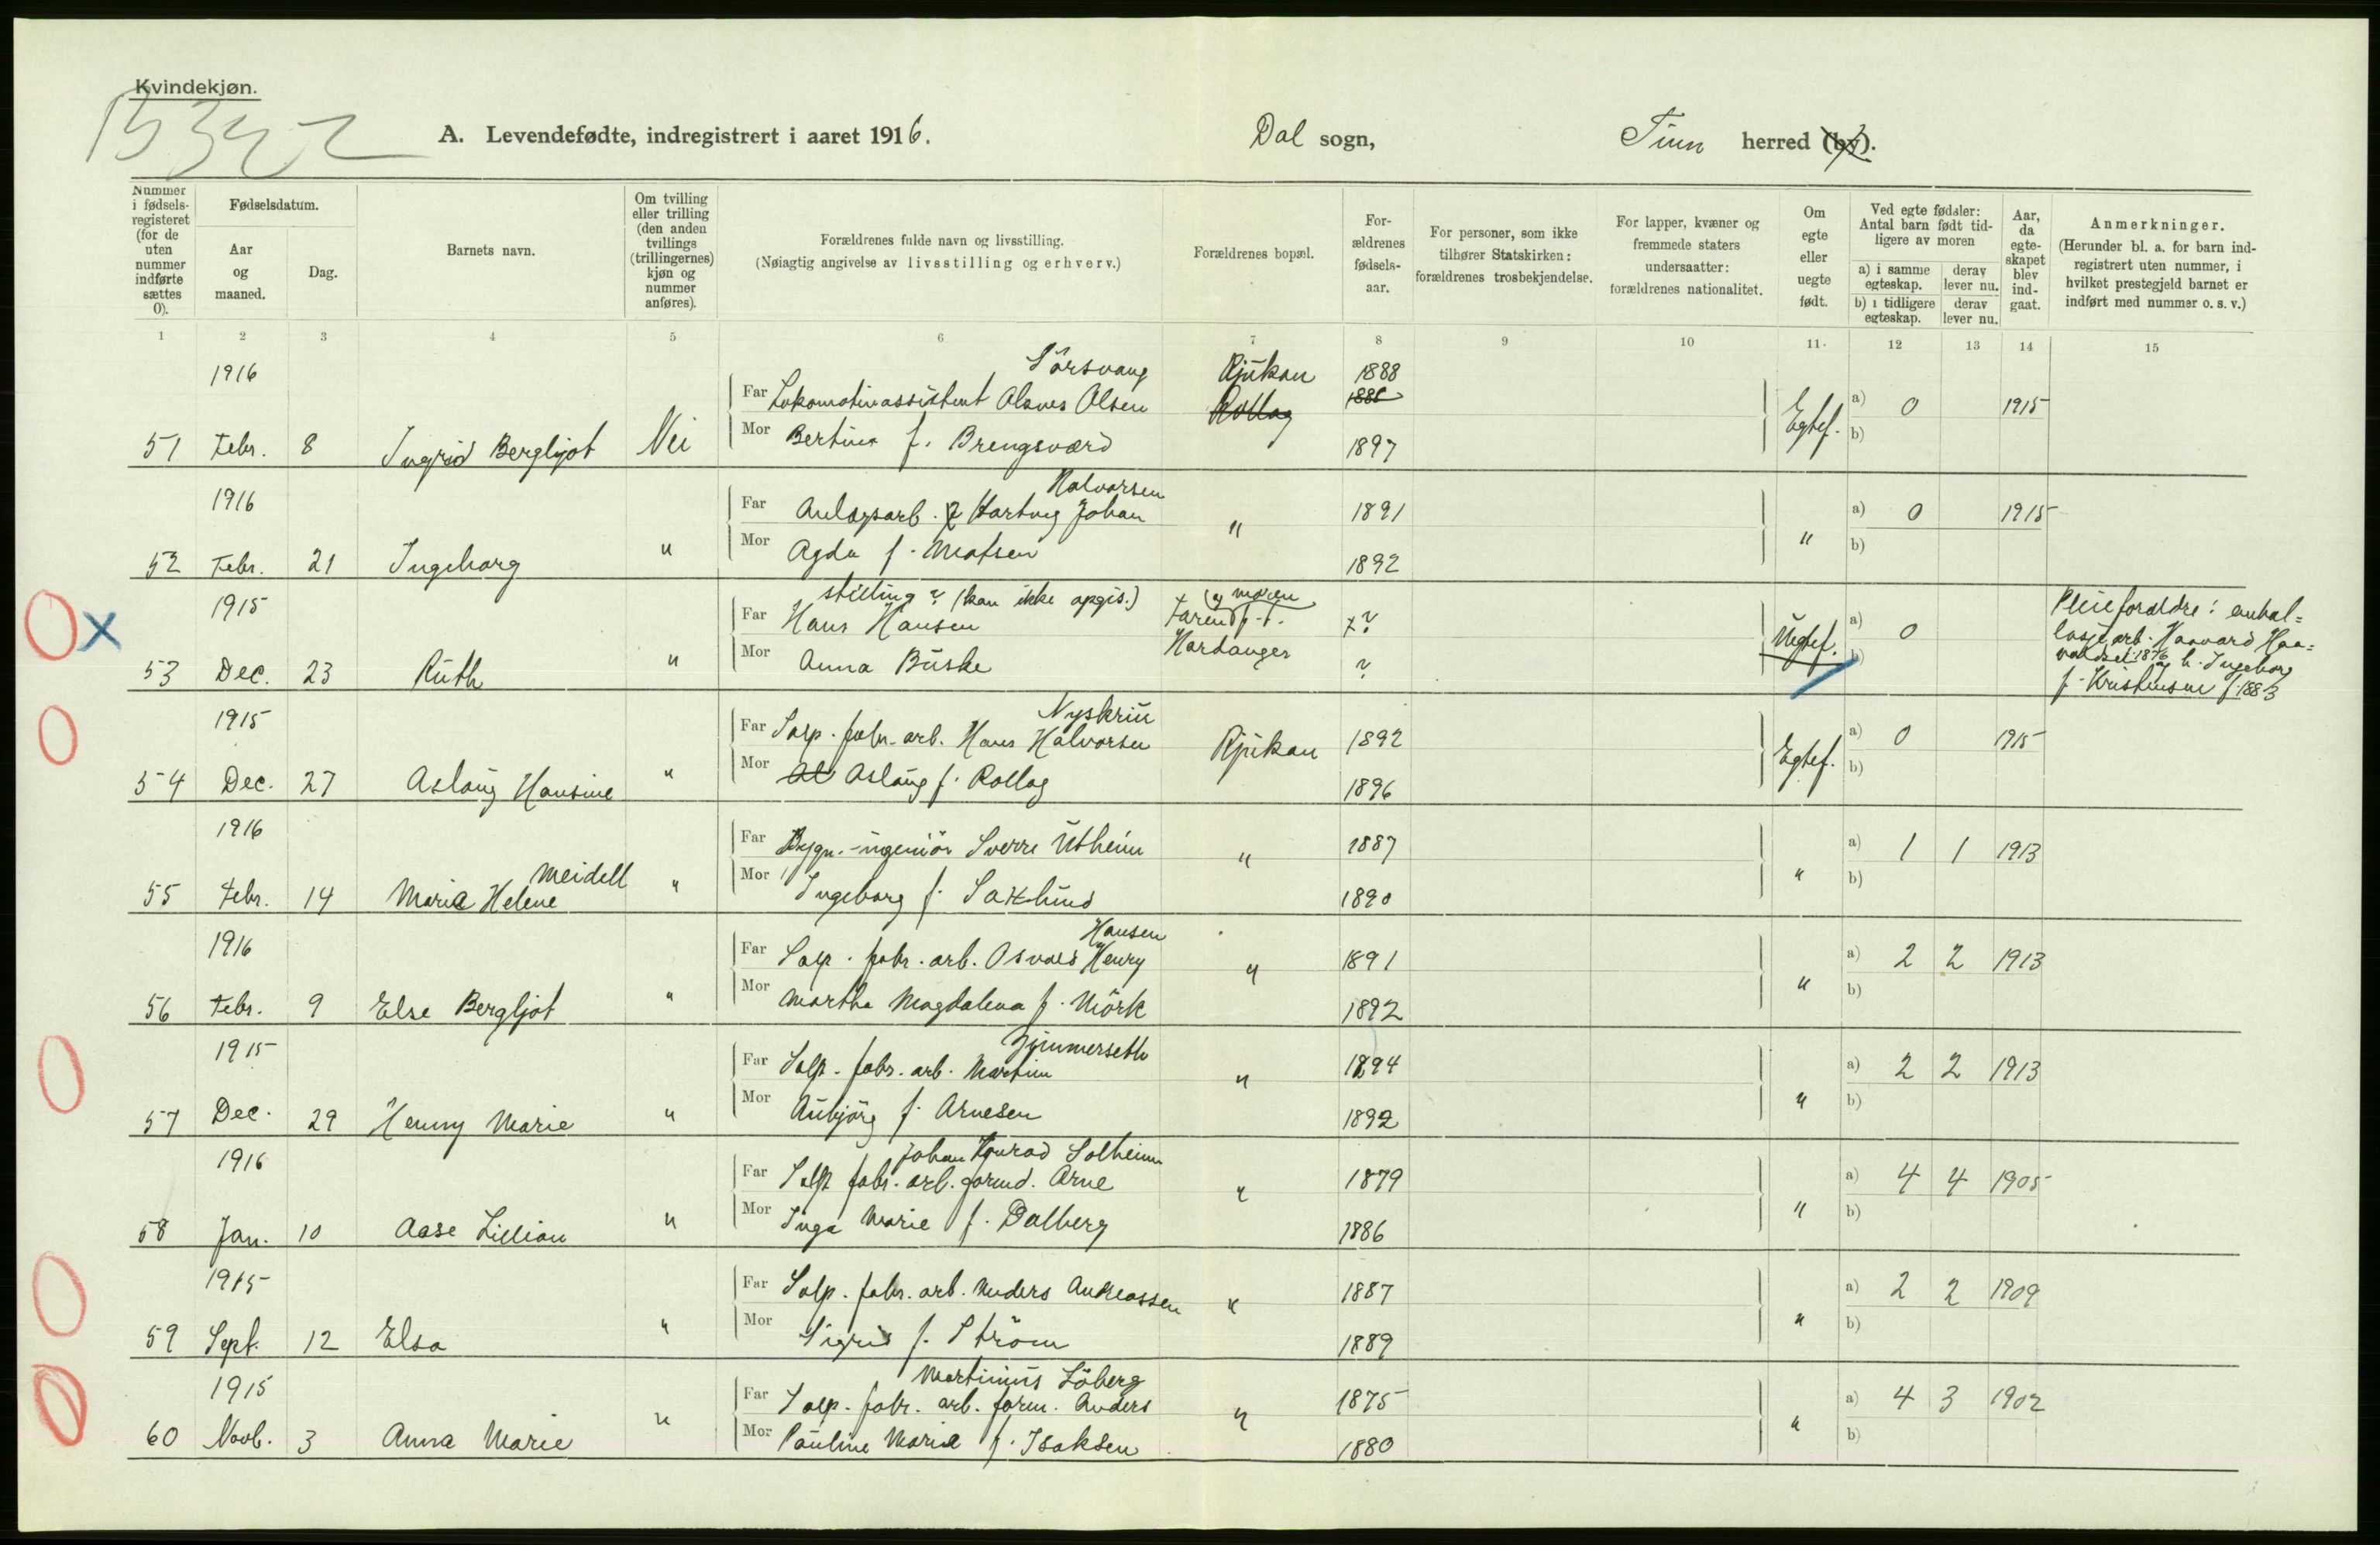 Kvindekjøn.
A. Levendefødte, indregistrert i aaret 1916.
Dal sogn,
Tinn herred (by).
Nummer i fødsels-registeret (for de uten nummer indførte sættes 0).
Fødselsdatum.
Aar og maaned.
Dag.
Barnets navn.
Om tvilling eller trilling (den anden tvillings (trillingernes) kjøn og nummer anføres).
Forældrenes fulde navn og livsstilling.
(Nøiagtig angivelse av livsstilling og erhverv.)
Forældrenes bopæl.
For-ældrenes fødsels-aar.
For personer, som ikke tilhører Statskirken: forældrenes trosbekjendelse.
For lapper, kvæner og fremmede staters undersaatter: forældrenes nationalitet.
Om egte eller uegte født.
Ved egte fødsler: Antal barn født tid-ligere av moren
a) i samme egteskap.
derav lever nu.
b) i tidligere egteskap.
derav lever nu.
Aar, da egte-skapet blev ind-gaat.
Anmerkninger.
(Herunder bl. a. for barn ind-registrert uten nummer, i hvilket prestegjeld barnet er indført med nummer o. s. v.)
1 2 3 4 5 6 7 8 9 10 11. 12 13 14 15
1916 Sörsvang Rjukan 1888
Far Lokomotivassistent Olsen Rollag a) 0 1915
51 Febr. 8 Ingrid Bergljot Nei Mor Bertine f. Brengsværd 1897 Egtef. b)
1916 Halvorsen
Far Anlægsarb. Hartvig Johan " 1891 a) 0 1915
52 Febr. 21 Ingeborg " Mor Agda f. Matsen 1892 " b)
1915 stilling? (kan ikke opgis.) og moren
Far Hans Hansen faren p.t. ? a) 0
53 Dec. 23 Ruth " Mor Anna Buske Hardanger ? Uegtef. b)
Pleieforældre: embal=
lasjearb. Haavard Haa=
1876 h. Ingeborg
f. Kristensen f. 1883
1915 Nyskrin
Far Salp. fabr. arb. Hans Halvorsen Rjukan 1892 a) 0 1915
54 Dec. 27 Aslaug Hansine " Mor Aslaug f. Rollag 1896 Egtef. b)
1916
Far Bygn.-ingeniör Sverre Utheim " 1887 a) 1 1 1913
Meidell
55 Febr. 14 Marie Helene " Mor Ingeborg f. Saxlund 1890 " b)
1916 Hansen
Far Salp. fabr. arb. Osvald Henry " 1891 a) 2 2 1913
56 Febr. 9 Else Bergljot " Mor Martha Magdalena f. Mörk 1892 " b)
1915 Gjimmerseth
Far Salp. fabr. arb. Martin " 1894 a) 2 2 1913
57 Dec. 29 Henny Marie " Mor Aubjörg f. Arnesen 1892 " b)
1916 Johan Konrad Solheim
Far Salp. fabr. arb. formd. Arne " 1879 a) 4 4 1905
58 Jan. 10 Aase Lillian " Mor Inga Marie f. Dalberg 1886 " b)
1915
Far Salp. fabr. arb. Anders Andreassen " 1887 a) 2 2 1909
59 Sept. 12 Elsa " Mor Sigrid f. Ström 1889 " b)
1915 Martinius Löberg
Far Salp. fabr. arb. form. Anders " 1875 a) 4 3 1902
60 Novb. 3 Anna Marie " Mor Pauline Marie f. Isaksen 1880 " b)